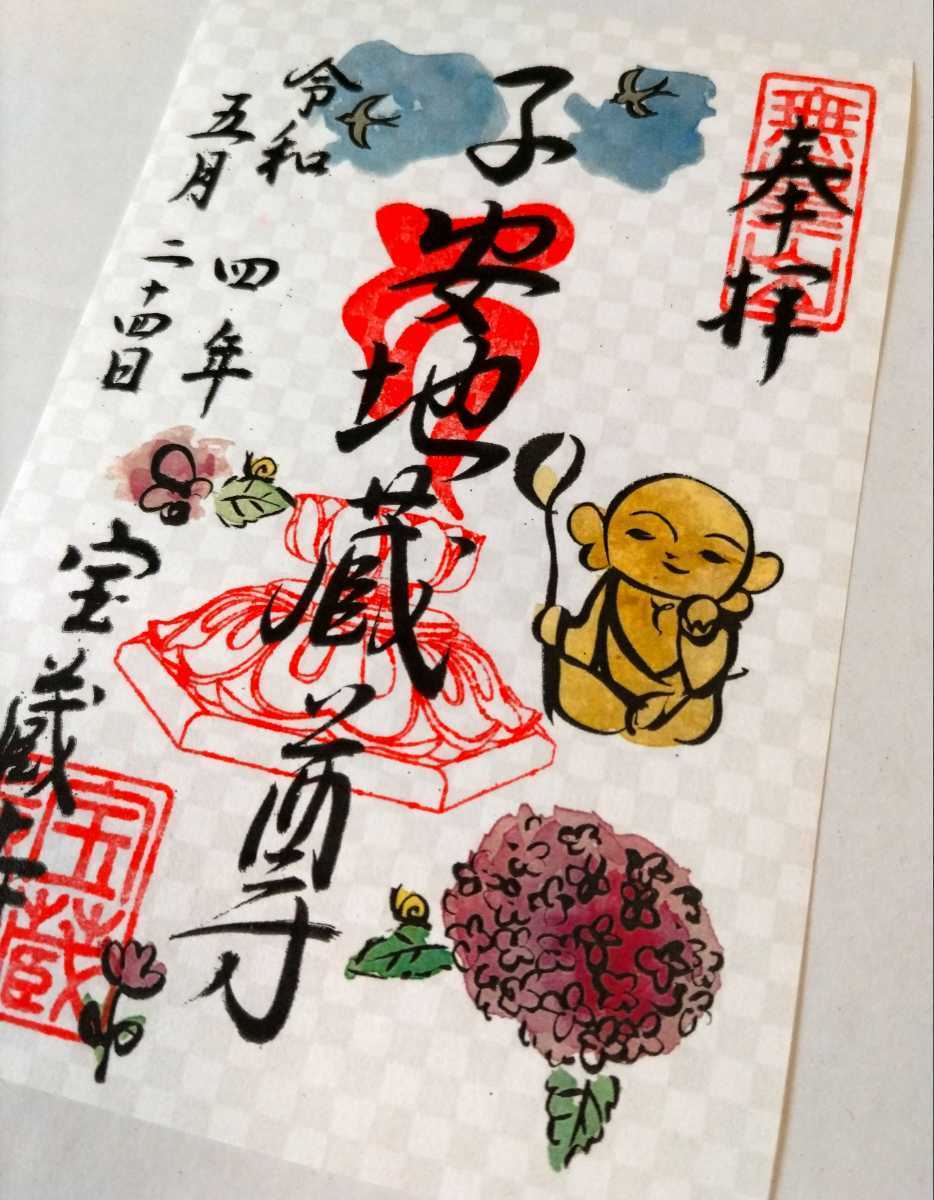 奉拝
子安地蔵尊
令和四年
五月二十四日
宝蔵寺
宝蔵